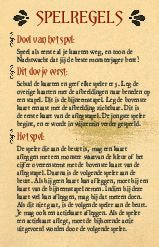 SPELREGELS
Doel van het spel:
Speel als eerste al je kaarten weg, en toon de
Nachtwacht dat jij de beste monsterjager bent!
Dit doe je eerst:
Schud de kaarten en geef elke speler er 5. Leg de
overige kaarten met de afbeeldingen naar beneden op
een stapel. Dit is de bijneemstapel. Leg de bovenste
kaart ernaast met de afbeelding zichtbaar. Dit is
de eerste kaart van de aflegstapel. De jongste speler
begint, en er wordt in wijzerzin verder gespeeld.
Het spel:
De speler die aan de beurt is, mag een kaart
afleggen met een monster waarvan de kleur of het
cijfer overeenkomt met de bovenste kaart van de
aflegstapel. Daarna is de volgende speler aan de
beurt. Als hij geen kaart kan afleggen, moet hij een
kaart van de bijneemstapel nemen. Indien hij deze
kaart wel kan afleggen, mag hij dat meteen doen.
Als dit niet gaat, is de volgende speler aan de beurt.
Je mag ook een actiekaart afleggen. Als de speler
een actiekaart aflegt, moet de bijhorende actie
uitgevoerd worden door de volgende speler.